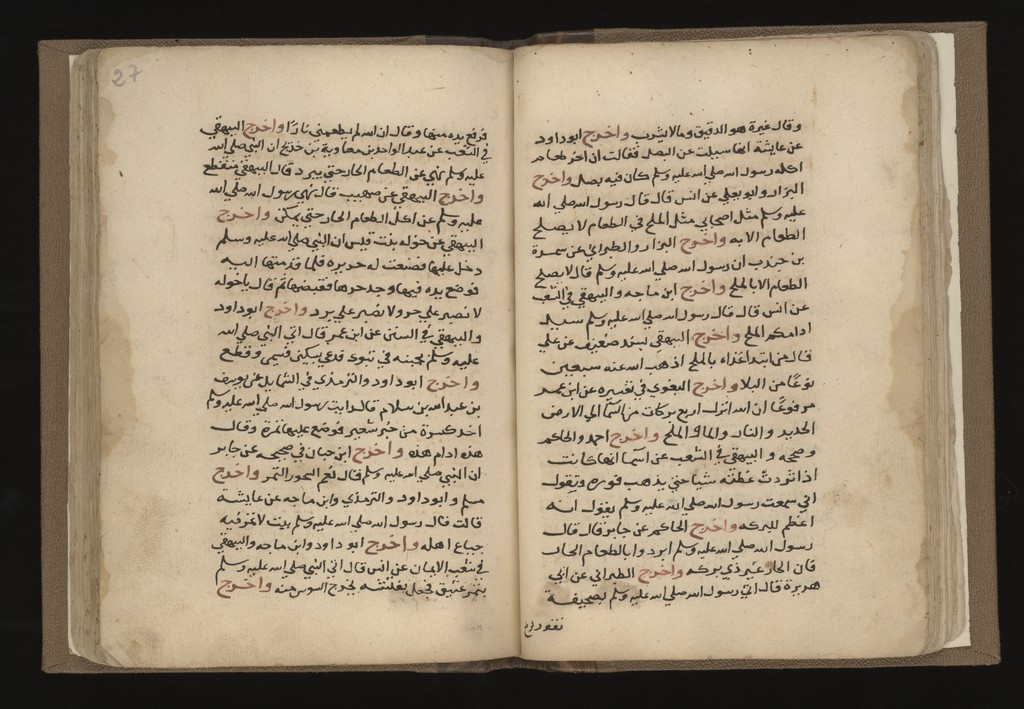 وقال غيره هو الدقيق وما لا يشرب واخرج ابو داود
عن عايشة انها سيلت عن البصل فقالت ان اخر طعام
اكله رسول الله صلى الله عليه وسلم كان فيه بصل واخرج
البزار وابو يعلي عن انس قال قال رسول الله صلى الله
عليه وسلم مثل اصحابي مثل الملح في الطعام لا يصلح
الطعام الا به واخرج البزار والطبراني عن سمرة
بن جندب ان رسول الله صلى الله عليه وسلم قال لا يصلح
الطعام الا بالملح واخرج ابن ماجه والبيهقي في الشعب
عن انس قال قال رسول الله صلى الله عليه وسلم سيد
ادامكم الملح واخرج البيهقي بسند ضعيف عن علي
قال من ابتدا غذاه بالملح اذهب الله عنه سبعين
نوعا من البلا واخرج البغوي في تفسيره عن ابن عمر
مرفوعا ان الله انزل اربع بركات من السما الي الارض
الحديد والنار والما والملح واخرج احمد والحاكم
وصححه والبيهقي في الشعب عن اسما انها كانت
اذا ثردت غطته شيا حتي يذهب فوره وتقول
اني سمعت رسول الله صلى الله عليه وسلم يقول انه
اعظم للبركه واخرج الحاكم عن جابر قال قال
رسول الله صلى الله عليه وسلم ابردوا بالطعام الحار
فان الحار غير ذي بركه واخرج الطبراني عن ابي
هريرة قال اتي رسول الله صلى الله عليه وسلم بصحيفة
تفور
27
فرفع يده منها وقال ان الله لم يطعمني نارا واخرج البيهقي
في الشعب عن عبد الواحد بن معاوية بن خديج ان النبي صلى الله
عليه وسلم نهي عن الطعام الحار حتي يبرد قال البيهقي منقطع
واخرج البيهقي عن صهيب قال نهي رسول الله صلى الله
عليه وسلم عن اكل الطعام الحار حتي يمكن واخرج
البيهقي عن خوله بنت قيس ان النبي صلى الله عليه وسلم
دخل عليها فصنعت له حريره فلما قدمتها اليه
فوضع يده فيها وجد حرها فقبضها ثم قال يا خوله
لا نصبر علي حر ولا نصبر علي برد واخرج ابو داود
والبيهقي في السنن عن ابن عمر قال اتي النبي صلى الله
عليه وسلم بجبنه في تبوك فدعي بسكين فسمي وقطع
واخرج ابو داود والترمذي في الشمايل عن يوسف
بن عبد الله بن سلام قال رايت رسول الله صلى الله عليه وسلم
اخذ كسرة من خبز شعير فوضع عليها تمرة وقال
هذه ادام هذه واخرج ابن حبان في صحيحه عن جابر
ان النبي صلى الله عليه وسلم قال نعم السحور التمر واخرج
مسلم وابو داود والترمذي وابن ماجه عن عايشه
قالت قال رسول الله صلى الله عليه وسلم بيت لا تمر فيه
جياع اهله واخرج ابو داود وابن ماجه والبيهقي
في شعب الايمان عن انس قال اتي النبي صلى الله عليه وسلم
بتمر عتيق فجعل يفتشه يخرج السوس منه واخرج